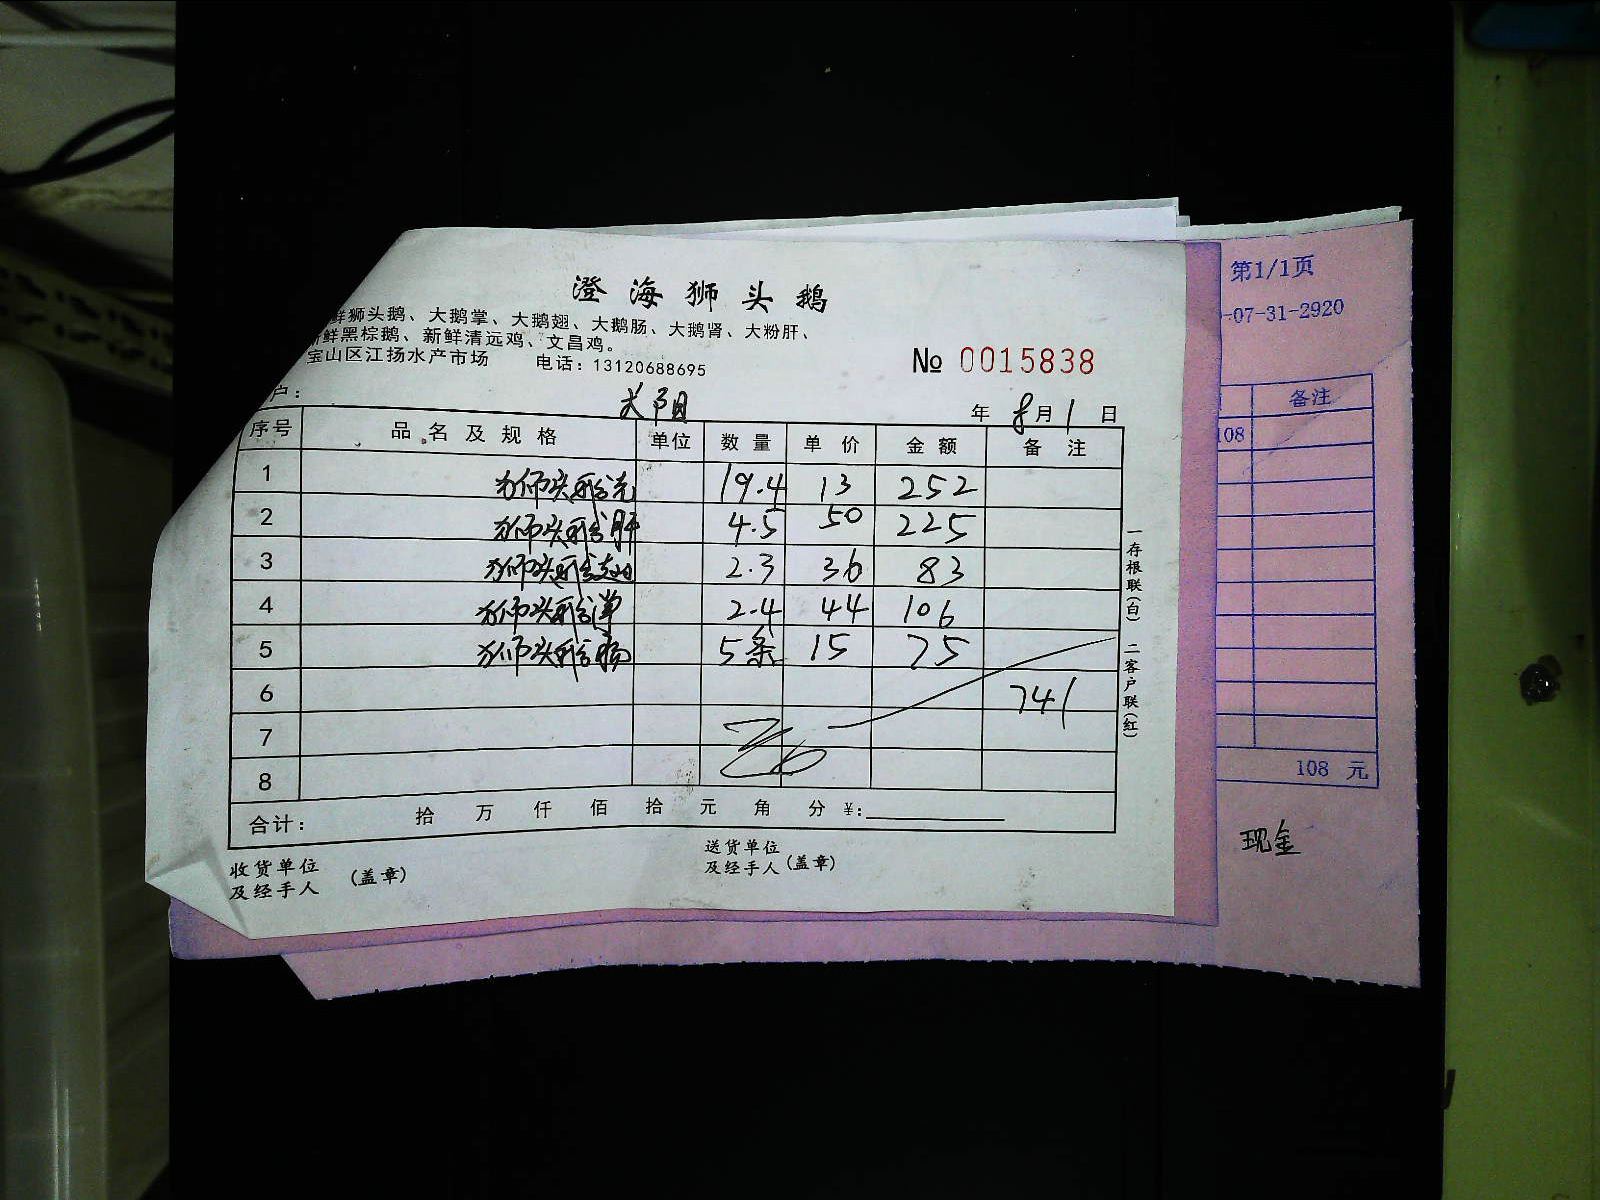 澄海狮头鹅
鲜狮头鹅、大鹅掌、大鹅翅、大鹅肠、大鹅肾、大粉肝、
鲜黑棕鹅、新鲜清远鸡、文昌鸡。
宝山区江扬水产市场 电话：13120688695
№ 0015838
户： 年 8月1日
序号 品名及规格 单位 数量 单价 金额 备注
1 狮头鹅 19.4 13 252
2 狮头鹅肝 4.5 50 225
3 狮头鹅翅 2.3 36 83
4 狮头鹅 2.4 44 106
5 狮头鹅肠 5条 15 75
6 741
7
8
合计： 拾 万 仟 佰 拾 元 角 分 ¥:
收货单位
及经手人 (盖章)
送货单位
及经手人 (盖章)
一存根联(白) 二客户联(红)
第1/1页
-07-31-2920
备注
108
108 元
现金